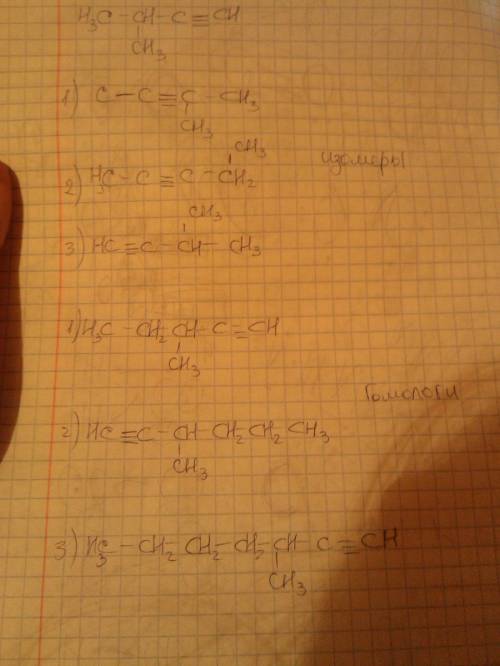 H₃C – CH – C ≡ CH
CH₃
1) C – C ≡ C – CH₃
CH₃
CH₃
изомеры
2) H₃C – C ≡ C – CH₂
CH₃
3) HC ≡ C – CH – CH₃
1) H₃C – CH₂ CH – C ≡ CH
CH₃
Гомологи
2) HC ≡ C – CH CH₂ CH₂ CH₃
CH₃
3) H₃C – CH₂ CH₂ – CH₂ CH C ≡ CH
CH₃